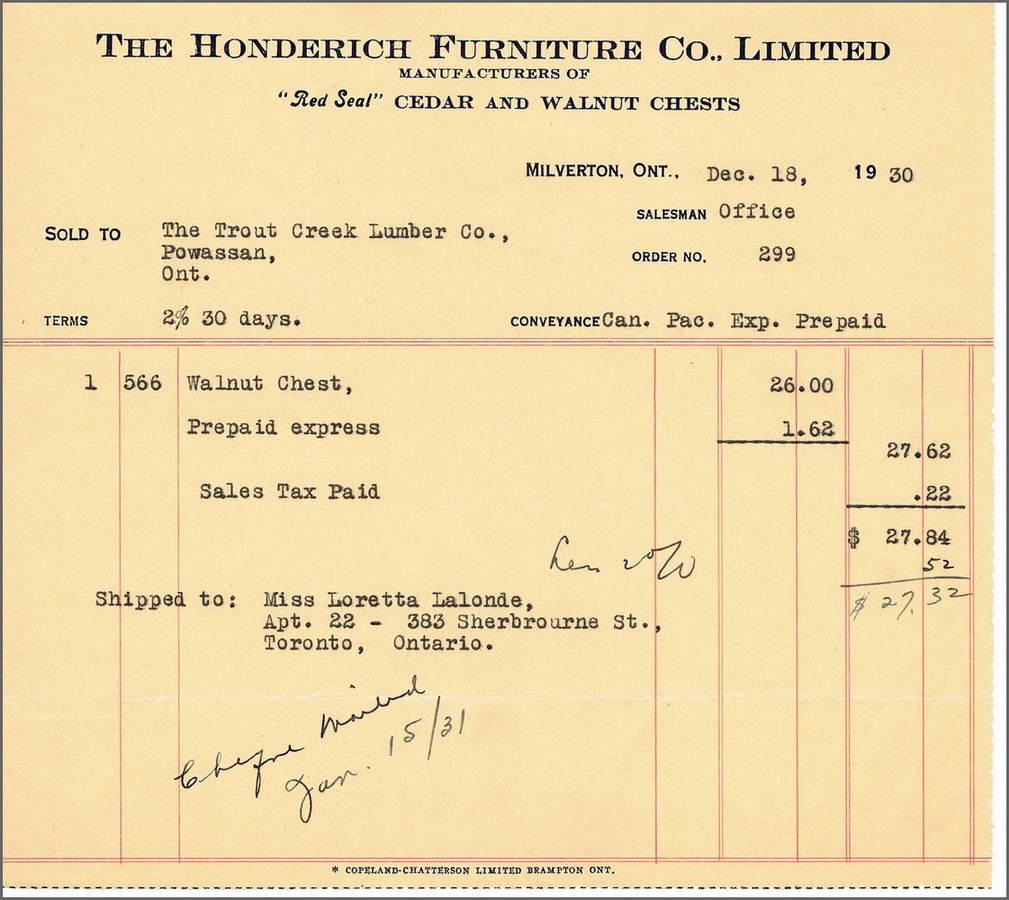 THE HONDERICH FURNITURE CO., LIMITED
MANUFACTURERS OF
"Red Seal" CEDAR AND WALNUT CHESTS
MILVERTON, ONT., Dec. 18, 1930
SALESMAN Office
SOLD TO The Trout Creek Lumber Co.,
Powassan,
Ont.
ORDER NO. 299
TERMS 2% 30 days.
CONVEYANCE Can. Pac. Exp. Prepaid
1 566 Walnut Chest, 26.00
Prepaid express 1.62
27.62
Sales Tax Paid .22
$ 27.84
Less 2% 52
$ 27.32
Shipped to: Miss Loretta Lalonde,
Apt. 22 - 383 Sherbrourne St.,
Toronto, Ontario.
Cheque Mailed
Jan. 15/31
* COPELAND-CHATTERSON LIMITED BRAMPTON ONT.